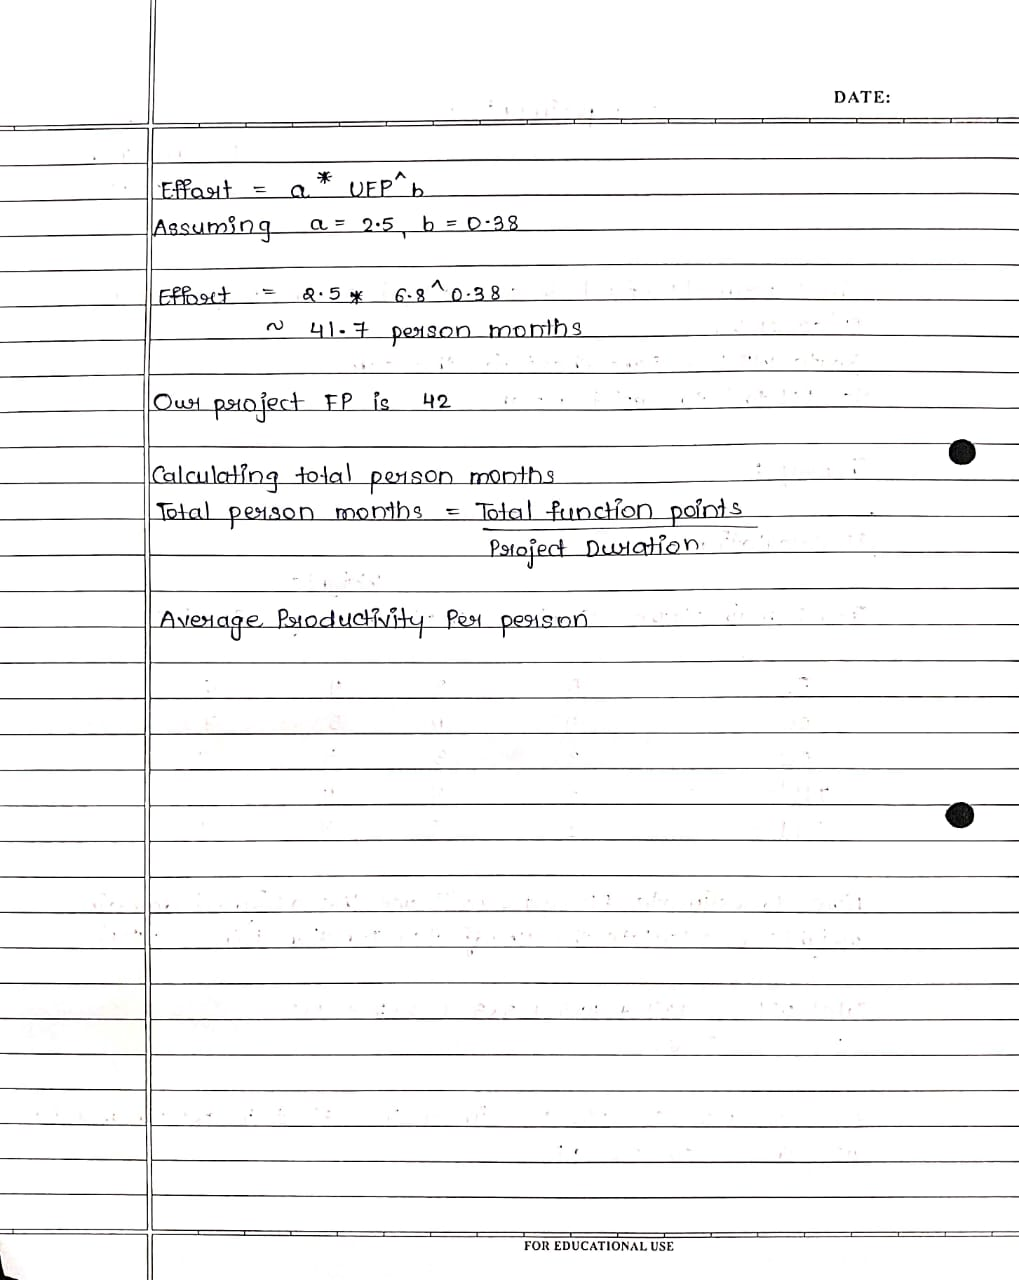 DATE:
Effort = a * UFP^b
Assuming a = 2.5, b = 0.38
Effort = 2.5 * 6.8^0.38
~ 41.7 person months
Our project FP is 42
Calculating total person months
Total person months = Total function points
Project Duration
Average Productivity Per person
FOR EDUCATIONAL USE